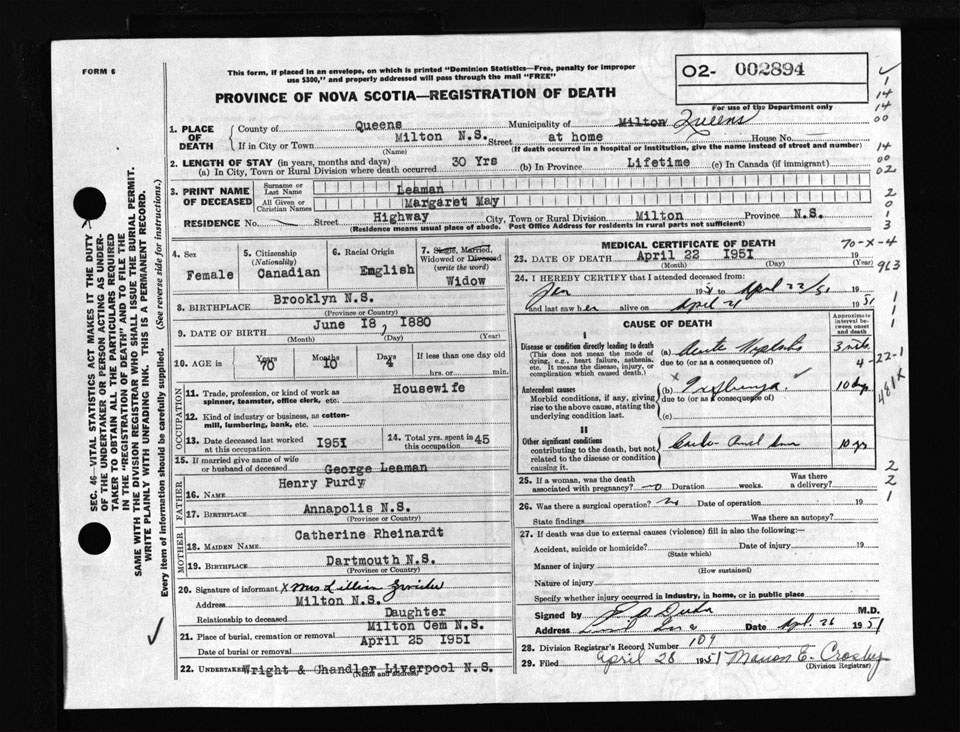 FORM 6
This form, if placed in an envelope, on which is printed "Dominion Statistics—Free, penalty for improper
use $300," and properly addressed will pass through the mail "FREE"
PROVINCE OF NOVA SCOTIA—REGISTRATION OF DEATH
O2- 002894
For use of the Department only
1. PLACE OF DEATH
County of Queens Municipality of Milton Queens
If in City or Town Milton N.S. Street at home House No.
(Name) (If death occurred in a hospital or institution, give the name instead of street and number)
2. LENGTH OF STAY (in years, months and days)
(a) In City, Town or Rural Division where death occurred 30 Yrs (b) In Province Lifetime (c) In Canada (if immigrant)
3. PRINT NAME OF DECEASED
Surname or Last Name Leaman
All Given or Christian Names Margaret May
RESIDENCE No. Street Highway City, Town or Rural Division Milton Province N.S.
(Residence means usual place of abode. Post Office Address for residents in rural parts not sufficient)
4. Sex Female
5. Citizenship (Nationality) Canadian
6. Racial Origin English
7. Single, Married, Widowed or Divorced (write the word) Widow
8. BIRTHPLACE Brooklyn N.S.
(Province or Country)
9. DATE OF BIRTH June 18, 1880
(Month) (Day) (Year)
10. AGE in Years 70 Months 10 Days 4 If less than one day old
hrs. or min.
OCCUPATION
11. Trade, profession, or kind of work as spinner, teamster, office clerk, etc. Housewife
12. Kind of industry or business, as cotton-mill, lumbering, bank, etc.
13. Date deceased last worked at this occupation 1951
14. Total yrs. spent in this occupation 45
15. If married give name of wife or husband of deceased George Leaman
FATHER
16. NAME Henry Purdy
17. BIRTHPLACE Annapolis N.S.
(Province or Country)
MOTHER
18. MAIDEN NAME Catherine Rheinardt
19. BIRTHPLACE Dartmouth N.S.
(Province or Country)
20. Signature of informant X Mrs Lillian
Address Milton N.S.
Relationship to deceased Daughter
21. Place of burial, cremation or removal Milton Cem N.S.
Date of burial or removal April 25 1951
22. UNDERTAKER Wright & Chandler Liverpool N.S.
(Name and address)
MEDICAL CERTIFICATE OF DEATH
23. DATE OF DEATH April 22 1951 19
(Month) (Day)
24. I HEREBY CERTIFY that I attended deceased from:
Jan 1951 to April 22/51 19
and last saw her alive on April 21 1951
CAUSE OF DEATH
Approximate interval between onset and death
I
Disease or condition directly leading to death
(This does not mean the mode of dying, e.g., heart failure, asthenia, etc. It means the disease, injury, or complication which caused death.)
(a) Acute
due to (or as a consequence of)
Antecedent causes
Morbid conditions, if any, giving rise to the above cause, stating the underlying condition last.
(b)
due to (or as a consequence of)
(c)
II
Other significant conditions contributing to the death, but not related to the disease or condition causing it.
10 yrs
25. If a woman, was the death associated with pregnancy? no Duration weeks. Was there a delivery?
26. Was there a surgical operation? no Date of operation 19
State findings Was there an autopsy?
27. If death was due to external causes (violence) fill in also the following:—
Accident, suicide or homicide? Date of injury 19
(State which)
Manner of injury
(How sustained)
Nature of injury
Specify whether injury occurred in industry, in home, or in public place
Signed by M.D.
Address Date Apl. 26 1951
28. Division Registrar's Record Number 109
29. Filed April 28 1951 Marion E. Crosby
(Division Registrar)
SEC. 46—VITAL STATISTICS ACT MAKES IT THE DUTY
OF THE UNDERTAKER OR PERSON ACTING AS UNDER-
TAKER TO OBTAIN ALL THE PARTICULARS REQUIRED
IN THE "REGISTRATION OF DEATH" AND TO FILE THE
SAME WITH THE DIVISION REGISTRAR WHO SHALL ISSUE THE BURIAL PERMIT.
WRITE PLAINLY WITH UNFADING INK. THIS IS A PERMANENT RECORD.
Every item of information should be carefully supplied. (See reverse side for instructions.)
1
14
14
00
14
00
02
2
0
1
3
70-X-4
963
1
1
1
4-22-1
481X
2
2
1